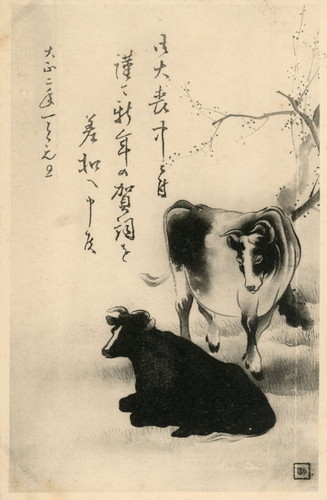 御大喪中ニ付
謹て新年の賀詞を
差扣へ申候
大正二年一月元旦